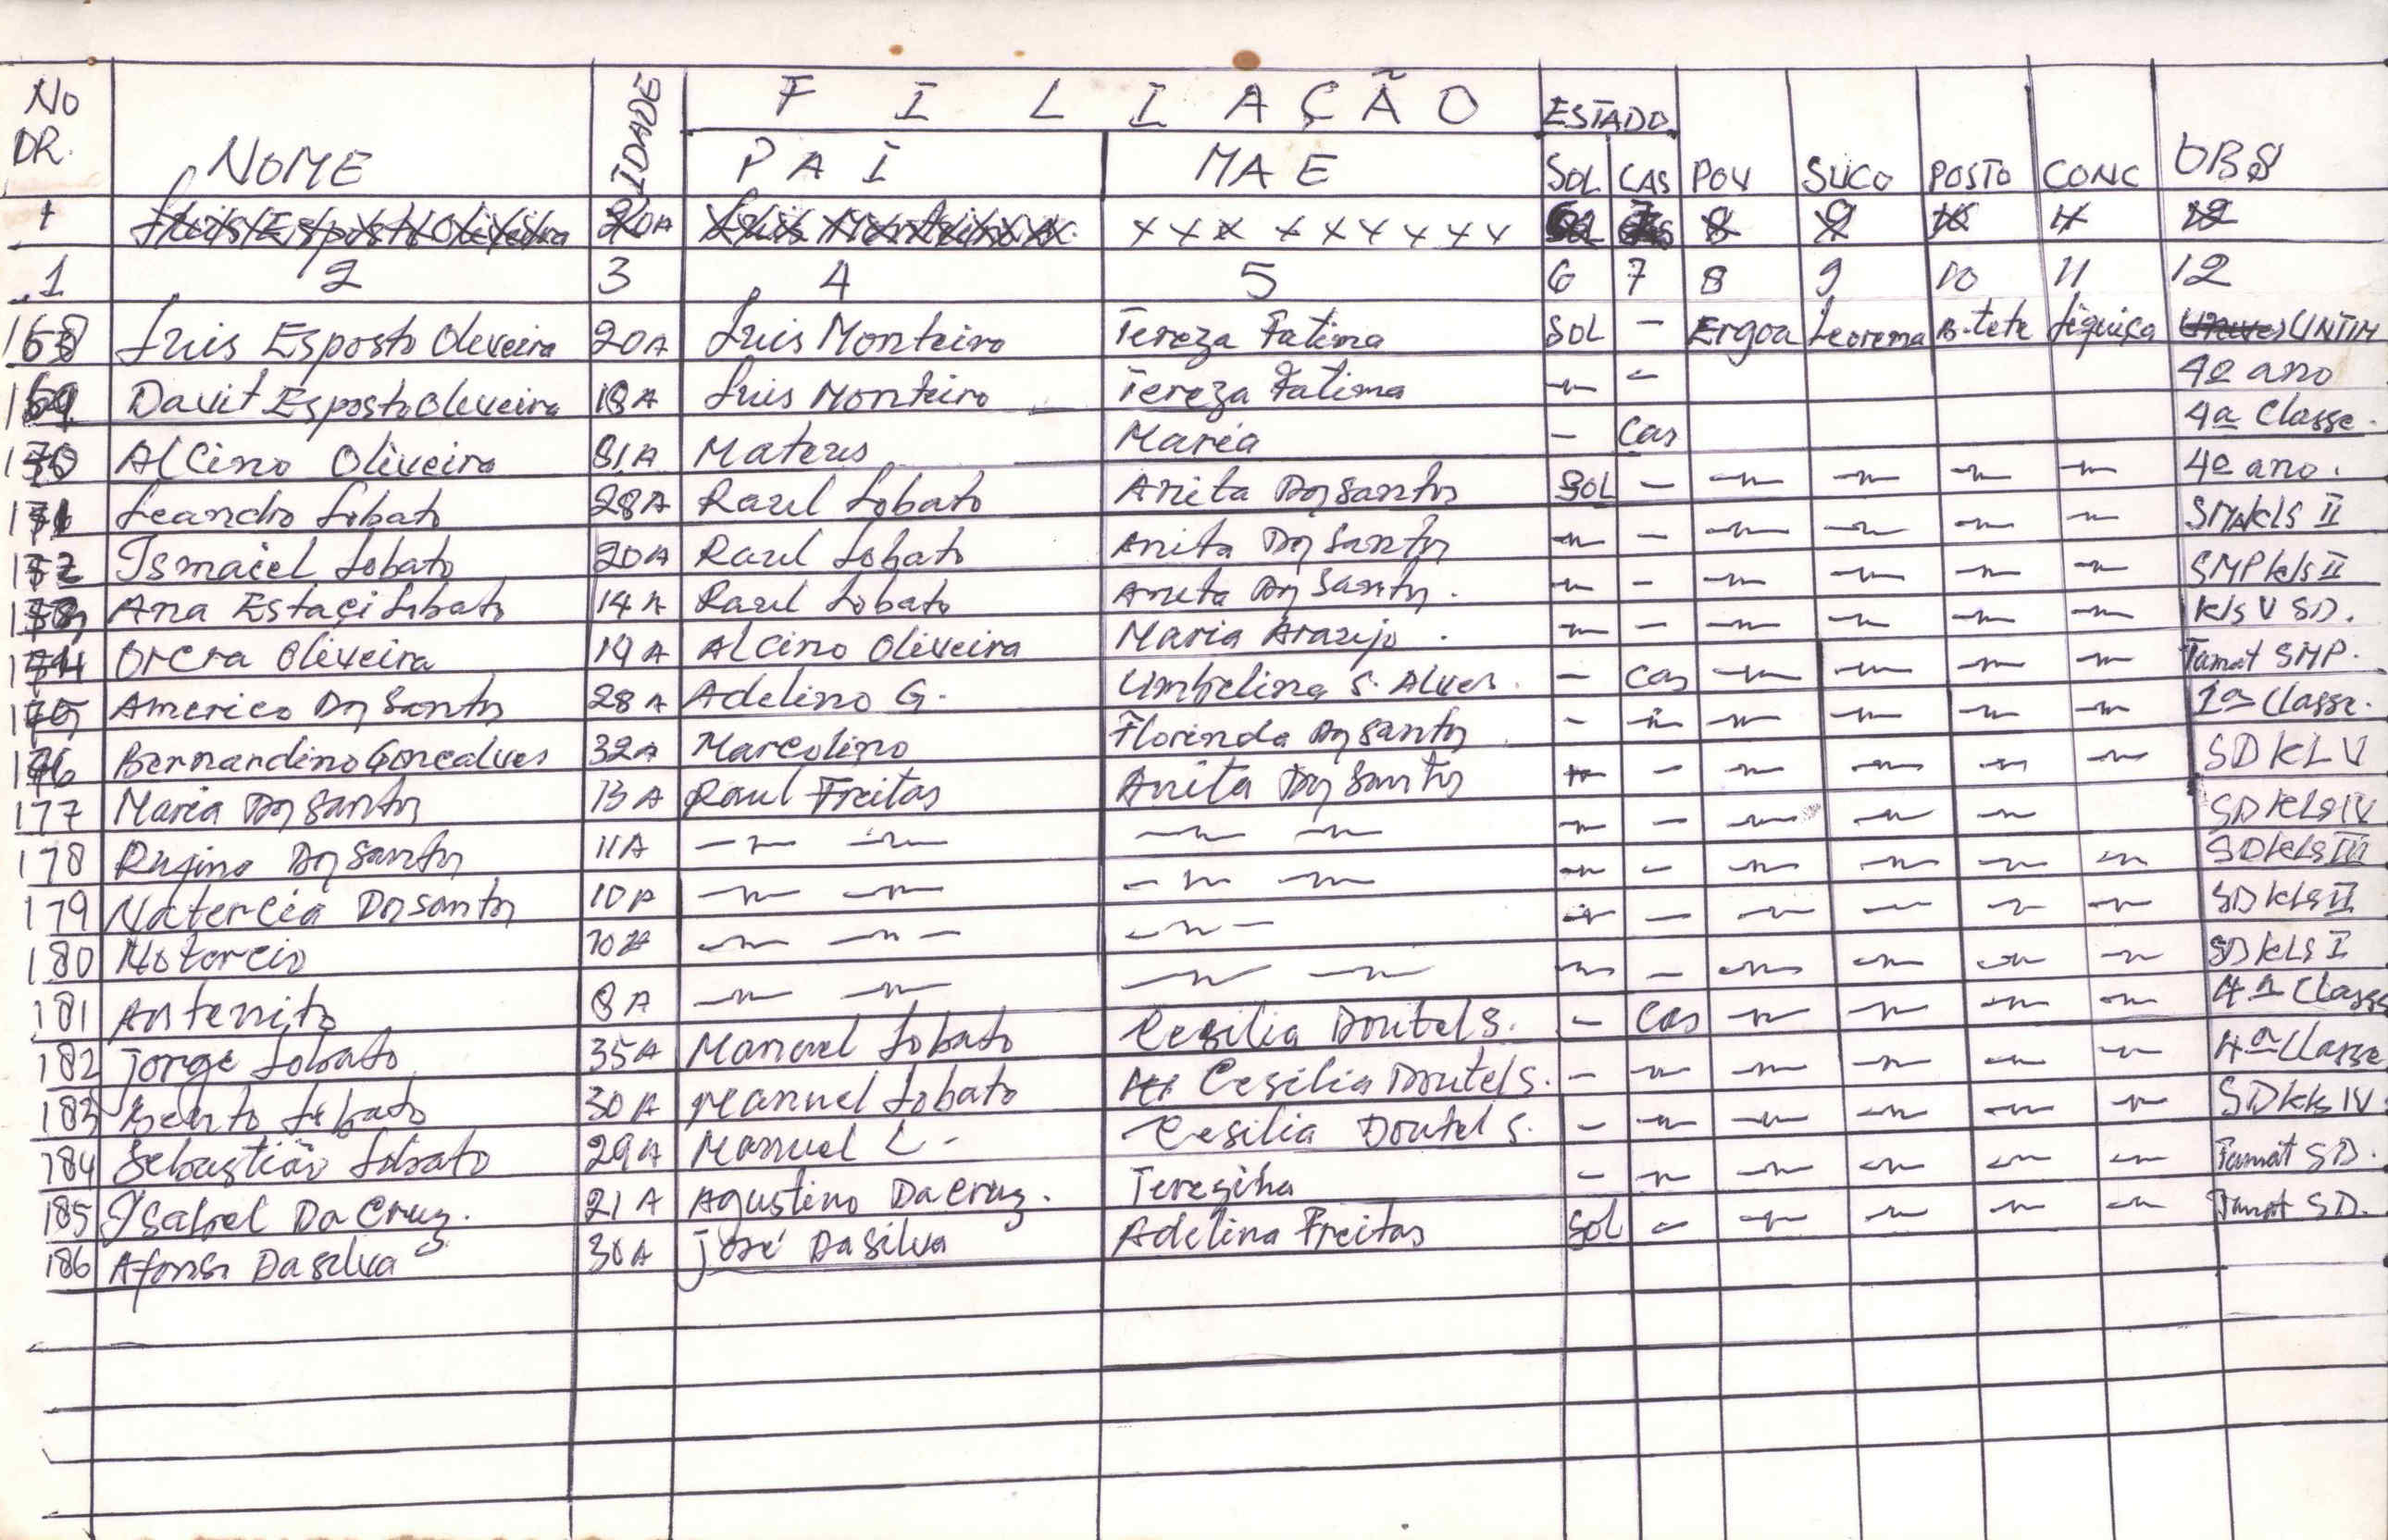 No DR. NOME IDADE FILIAÇÃO ESTADO POV SUCO POSTO CONC OBS
PAI MAE SOL CAS
1 2 3 4 5 6 7 8 9 10 11 12
168 Luis Esposto Oliveira 20A Luis Monteiro Tereza Fatima SOL - Ergoa Leorema B-tete Liquiça UNTIM
169 Davit Esposto Oliveira 18A Luis Monteiro Tereza Fatima ~ - 4º ano
170 Alcino Oliveira 81A Mateus Maria - Cas 4ª Classe.
171 Leandro Lobato 28A Raul Lobato Anita Dos Santos SOL - ~ ~ ~ ~ 4º ano.
172 Ismaiel Lobato 20A Raul Lobato Anita Dos Santos ~ - ~ ~ ~ ~ SMAKLS II
173 Ana Estaçi Lobato 14A Raul Lobato Aneta Dos Santos. ~ - ~ ~ ~ ~ SMP kls II
174 Orcra Oliveira 19A Alcino Oliveira Maria Araujo. ~ - ~ ~ ~ ~ kls V SD.
175 Americo Dos Santos 28A Adelino G. Umbelina S. Alves. - Cas ~ ~ ~ ~ Tamat SMP.
176 Bernardino Goncalves 32A Marcolino Florinda Dos Santos - ~ ~ ~ ~ ~ 1ª Classe.
177 Maria Dos Santos 13A Raul Freitas Anita Dos Santos ~ - ~ ~ ~ ~ SD KL V
178 Rugino Dos Santos 11A ~ ~ ~ ~ ~ - ~ ~ ~ SD KLS IV
179 Natercia Dos Santos 10A ~ ~ ~ ~ ~ - ~ ~ ~ ~ SD KLS III
180 Notorcio 10A ~ ~ - ~ - ~ - ~ ~ ~ ~ SD KLS II
181 Antenito 8A ~ ~ ~ ~ ~ - ~ ~ ~ ~ SD KLS I
182 Jorge Lobato 35A Manuel Lobato Cesilia Doutel S. - Cas ~ ~ ~ ~ 4ª Classe
183 Bento Lobato 30A Manuel Lobato Cesilia Doutel S. - ~ ~ ~ ~ ~ 4ª Classe
184 Sebastião Lobato 29A Manuel L - Cesilia Doutel S. - ~ ~ ~ ~ ~ SD kls IV.
185 Isabel Da Cruz. 21A Agustino Da Cruz. Teresiha - ~ ~ ~ ~ ~ Tamat SD.
186 Afonso Da silva 30A José Da silva Adelina Freitas Sol - ~ ~ ~ ~ Tamat SD.